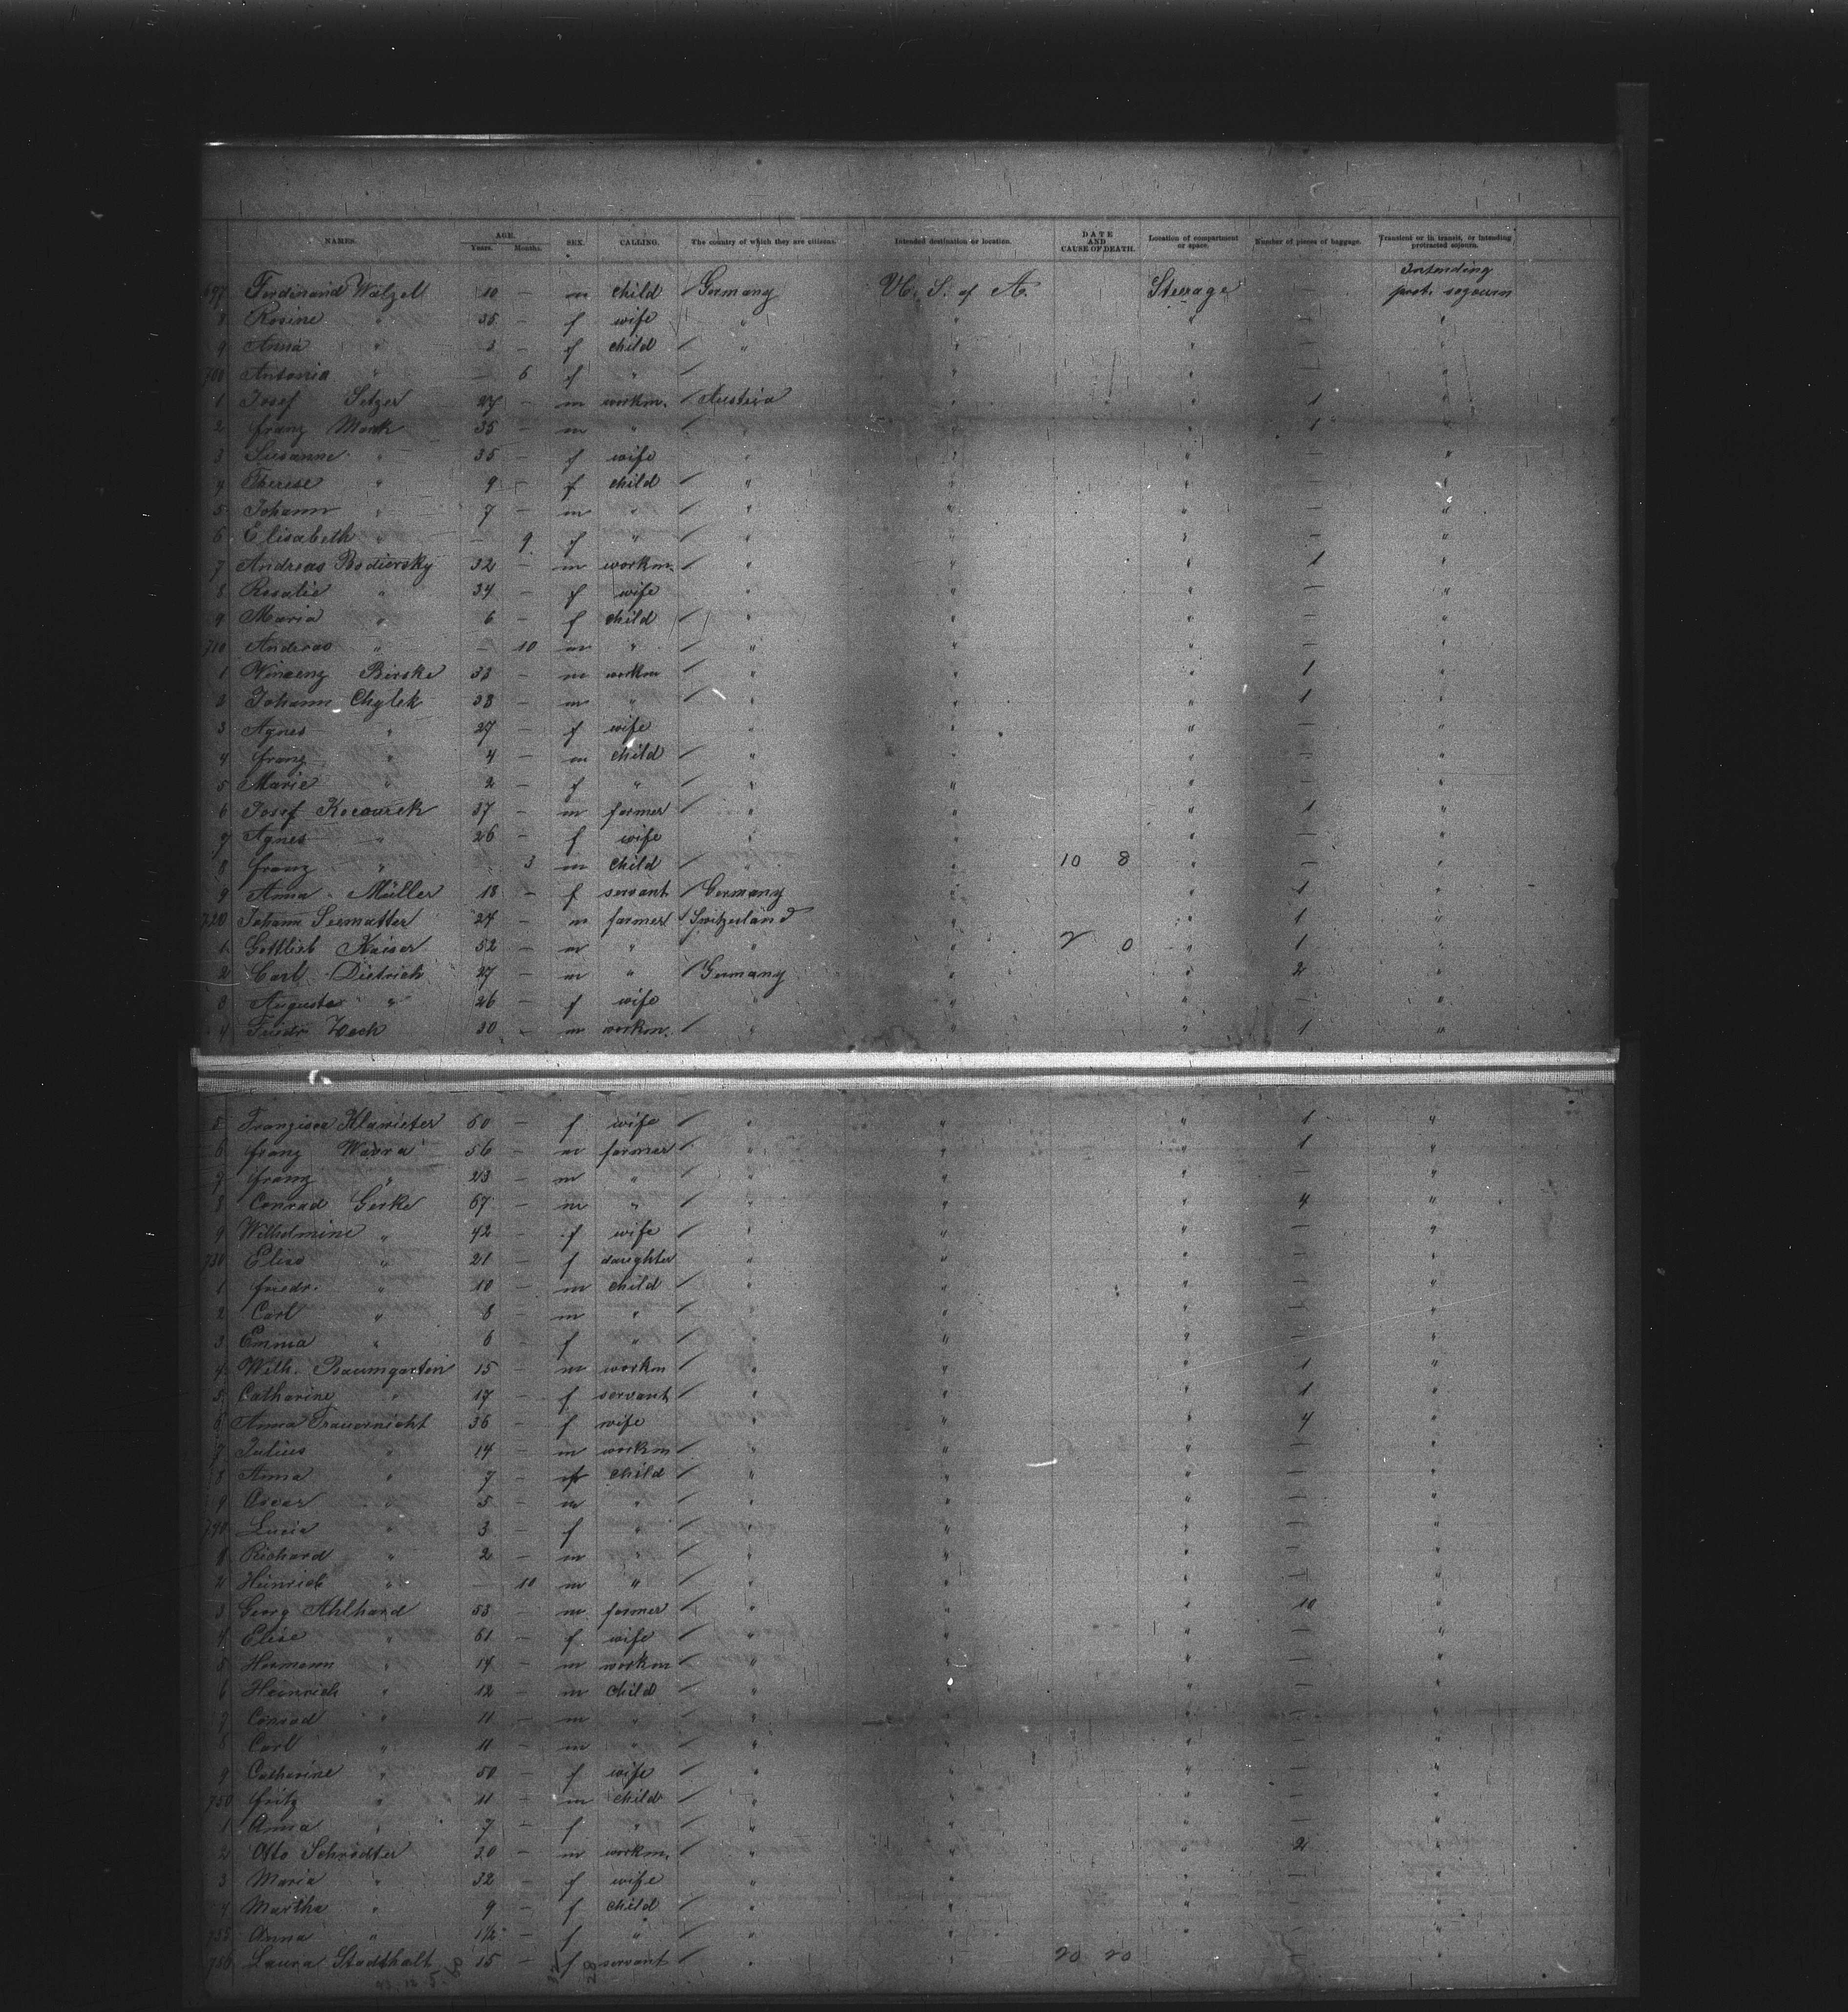 NAMES. AGE. Years. Months. SEX. CALLING. The country of which they are citizens. Intended destination or location. DATE AND CAUSE OF DEATH. Location of compartment or space. Number of pieces of baggage. Transient or in transit, or intending protracted sojourn.
697 Ferdinand Watzell 10 — m child Germany U. S. of A. Steerage — Intending prot. sojourn
8 Rosine " 35 — f wife " " " — "
9 Anna " 3 — f child " " " — "
700 Antonia " — 6 f " " " — "
1 Josef Setzer 27 — m workm. Austria " " 1 "
2 Franz Mack 35 — m " " " " 1 "
3 Susanne " 35 — f wife " " " — "
4 Therese " 9 — f child " " " — "
5 Johann " 7 — m " " " " — "
6 Elisabeth " — 9 f " " " " — "
7 Andreas Bodiersky 32 — m workm. " " " 1 "
8 Rosalie " 34 — f wife " " " — "
9 Maria " 6 — f child " " " — "
710 Andreas " — 10 m " " " " — "
1 Vinzenz Birske 33 — m workm " " " 1 "
2 Johann Chylek 38 — m " " " " 1 "
3 Agnes " 27 — f wife " " " — "
4 Franz " 4 — m child " " " — "
5 Marie " 2 — f " " " " — "
6 Josef Kocourek 37 — m farmer " " " 1 "
7 Agnes " 26 — f wife " " " — "
8 Franz " 3 m child " " 10 8 " — "
9 Anna Müller 18 — f servant Germany " " 1 "
720 Johann Seematter 27 — m farmer Switzerland " " 1 "
1 Gottlieb Kaiser 52 — m " " " 2 0 " 1 "
2 Carl Dietrich 27 — m " Germany " " 2 "
3 Auguste " 26 — f wife " " " — "
4 Friedr. Zech 30 — m workm. " " " 1 "
5 Franzisca Klawieter 60 — f wife " " " 1 "
6 Franz Wawra 56 — m farmer " " " 1 "
7 Franz " 23 — m " " " " — "
8 Conrad Gerke 67 — m " " " " 4 "
9 Wilhelmine " 42 — f wife " " " — "
730 Elise " 21 — f daughter " " " — "
1 Friedr. " 10 — m child " " " — "
2 Carl " 8 — m " " " " — "
3 Emma " 6 — f " " " " — "
4 Wilh. Baumgarten 15 — m workm " " " 1 "
5 Catharine " 17 — f servant " " " 1 "
6 Anna Trauernicht 36 — f wife " " " 4 "
7 Julius " 14 — m workm " " " — "
8 Anna " 7 — f child " " " — "
9 Oscar " 5 — m " " " " — "
740 Lucie " 3 — f " " " " — "
1 Richard " 2 — m " " " " — "
2 Heinrich " — 10 m " " " " — "
3 Georg Ahlhard 53 m. farmer " " " 10 "
4 Elise " 61 — f wife " " " — "
5 Hermann " 14 — m workm " " " — "
6 Heinrich " 12 — m child " " " — "
7 Conrad " 11 — m " " " " — "
8 Carl " 11 — m " " " " — "
9 Catherine " 50 — f wife " " " — "
750 Fritz " 11 — m child " " " — "
1 Anna " 7 — f " " " " — "
2 Otto Schrödter 30 — m workm. " " " 2 "
3 Maria " 32 — f wife " " " — "
4 Martha " 9 — f child " " " — "
755 Anna " 1½ — f " " " " — "
756 Laura Stadthalt 15 — f servant " 20 20 — "